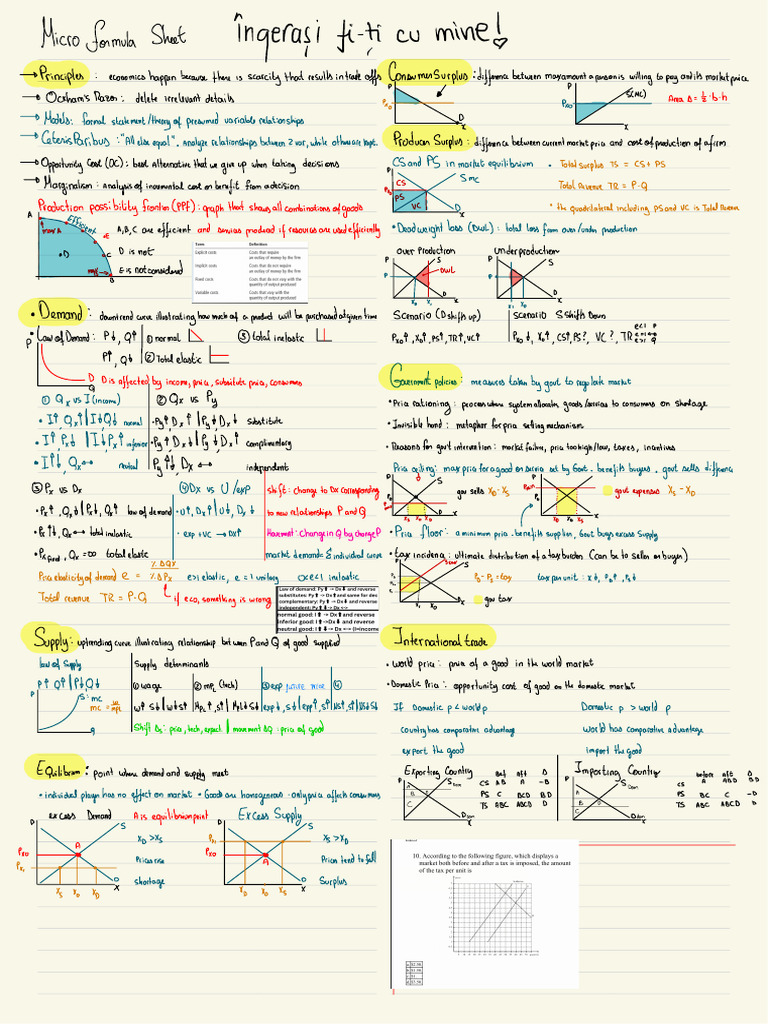 Micro Formula Sheet îngerași fi-ți cu mine!
→ Principles : economics happen because there is scarcity that results in trade offs
→ Ockham's Razor : delete irrelevant details
→ Models : formal statement/theory of presumed variable relationships
→ Ceteris Paribus : "All else equal", analyze relationships between 2 var, while others are kept.
→ Opportunity Cost (OC) : best alternative that we give up when taking decisions
→ Marginalism : analysis of incremental cost or benefit from a decision
Production possibility frontier (PPF) : graph that shows all combinations of goods
and services produced if resources are used efficiently
A
Efficient
max A
E
C
D
max B
B
A, B, C are efficient
D is not
E is not considered
Term Definition
Explicit costs Costs that require an outlay of money by the firm
Implicit costs Costs that do not require an outlay of money by the firm
Fixed costs Costs that do not vary with the quantity of output produced
Variable costs Costs that vary with the quantity of output produced
• Demand : downtrend curve illustrating how much of a product will be purchased at given time
• Law of Demand : P↓, Q↑
P↑, Q↓
① normal
③ total inelastic
② Total elastic
P
D
Q
D is affected by income, price, substitute price, consumers
① Qx vs I (income)
• I↑ Qx↑ | I↓ Q↓ normal
inferior
neutral
② Qx vs Py
• Py↑ Dx↑ | Py↓ Dx↓ substitute
• Py↑ Dx↓ | Py↓ Dx↑ complimentary
• Py↑↓ Dx ↔ independent
③ Px vs Dx
• Px↑, Qx↓ | Px↓, Qx↑ law of demand
• Px↑↓, Qx ↔ total inelastic
• Px fixed, Qx = ∞ total elastic
④ Dx vs U / exp
• U↑, Dx↑ | U↓, Dx↓
• exp + vc → Dx↑
Shift : change to Dx corresponding
to new relationships P and Q
Movement : Change in Q by change P
market demand = Σ individual curve
Price elasticity of demand e = %ΔQx / %ΔPx
e>1 elastic, e=1 unitary 0<e<1 inelastic
Total revenue TR = P·Q
if e<0, something is wrong
Law of demand: Py⬆ -> Dx⬇ and reverse
substitutes: Py ⬆ -> Dx⬆ and same for dec
complementary: Py⬆ -> Dx⬇ and reverse
independent: Py⬆⬇ -> Dx <->
normal good: I⬆ -> Dx⬆ and reverse
inferior good: I⬆ -> Dx⬇ and reverse
neutral good: I⬆⬇ -> Dx <-> (I=income
Supply : uptrending curve illustrating relationship between P and Q of good supplied
law of Supply
P↑ Q↑ | P↓ Q↓
P
S = mc
mc = w/mpL
Q
Supply determinants
① wage
w↑ S↓ | w↓ S↑
② mpL (tech)
mpL↑, S↑ | mpL↓ S↓
③ exp future price
exp↓, S↓ | exp↑, S↑
④
Shift Δs : price, tech, expect. | movement ΔQ : price of good
Equilibrium : point where demand and supply meet
• individual player has no effect on market • Goods are homogenous • only price affects consumers
excess Demand
A is equilibrium point
Excess Supply
D
S
A
Px0
Px1
Xs
X0
XD
D
X
XD > XS
Price rise
shortage
D
S
Px1
Px0
A
XD
X0
XS
D
X
XS > XD
Price tend to fall
Surplus
Consumer Surplus : difference between max amount a person is willing to pay and its market price
P
D
X
P
Px0
S(MC)
X
Area Δ = ½·b·h
Producer Surplus : difference between current market price and cost of production of a firm
CS and PS in market equilibrium
P
CS
PS
VC
S mc
D
X
• Total surplus TS = CS + PS
Total Revenue TR = P·Q
* the quadrilateral including PS and VC is Total Revenue
• Deadweight loss (DWL) : total loss from over/under production
over Production
Underproduction
P
S
DWL
D
X0
X1
P
S
D
X
Scenario (D shift up)
Px0↑, X0↑, PS↑, TR↑, VC↑
Scenario S shift Down
Px0↓, X0↑, CS↑, PS?, VC?, TR
Government policies : measures taken by govt to regulate market
• Price rationing : process where system allocates goods/services to consumers on shortage
• Invisible hand : metaphor for price setting mechanism
• Reasons for govt intervention : market failure, price too high/low, taxes, incentives
Price ceiling : max price for a good or service set by Govt. benefits buyers. govt sells difference
gov sells XD - XS
govt expenses XS - XD
• Price floor : a minimum price. benefits supplier, Govt buys excess Supply
• tax incidence : ultimate distribution of a tax burden (can be to seller or buyer)
PB - PS = tax
tax per unit : x↓, PB↑, PS↓
gov tax
International trade
• World price : price of a good in the world market
• Domestic Price : opportunity cost of good on the domestic market
If Domestic p < world p
country has comparative advantage
export the good
Domestic p > world p
World has comparative advantage
import the good
Exporting Country
P
A
B
C
D
S Dom
D Dom
X
Bef aft Δ
CS AB A -B
PS C BCD BD
TS ABC ABCD D
Importing Country
P
A
B
C
D
S
D Dom
X
before aft Δ
CS A
PS BC C -B
TS ABC ABCD D
10. According to the following figure, which displays a
market both before and after a tax is imposed, the amount
of the tax per unit is
a. $2.50.
b. $1.50.
c. $1
d. $3.50.